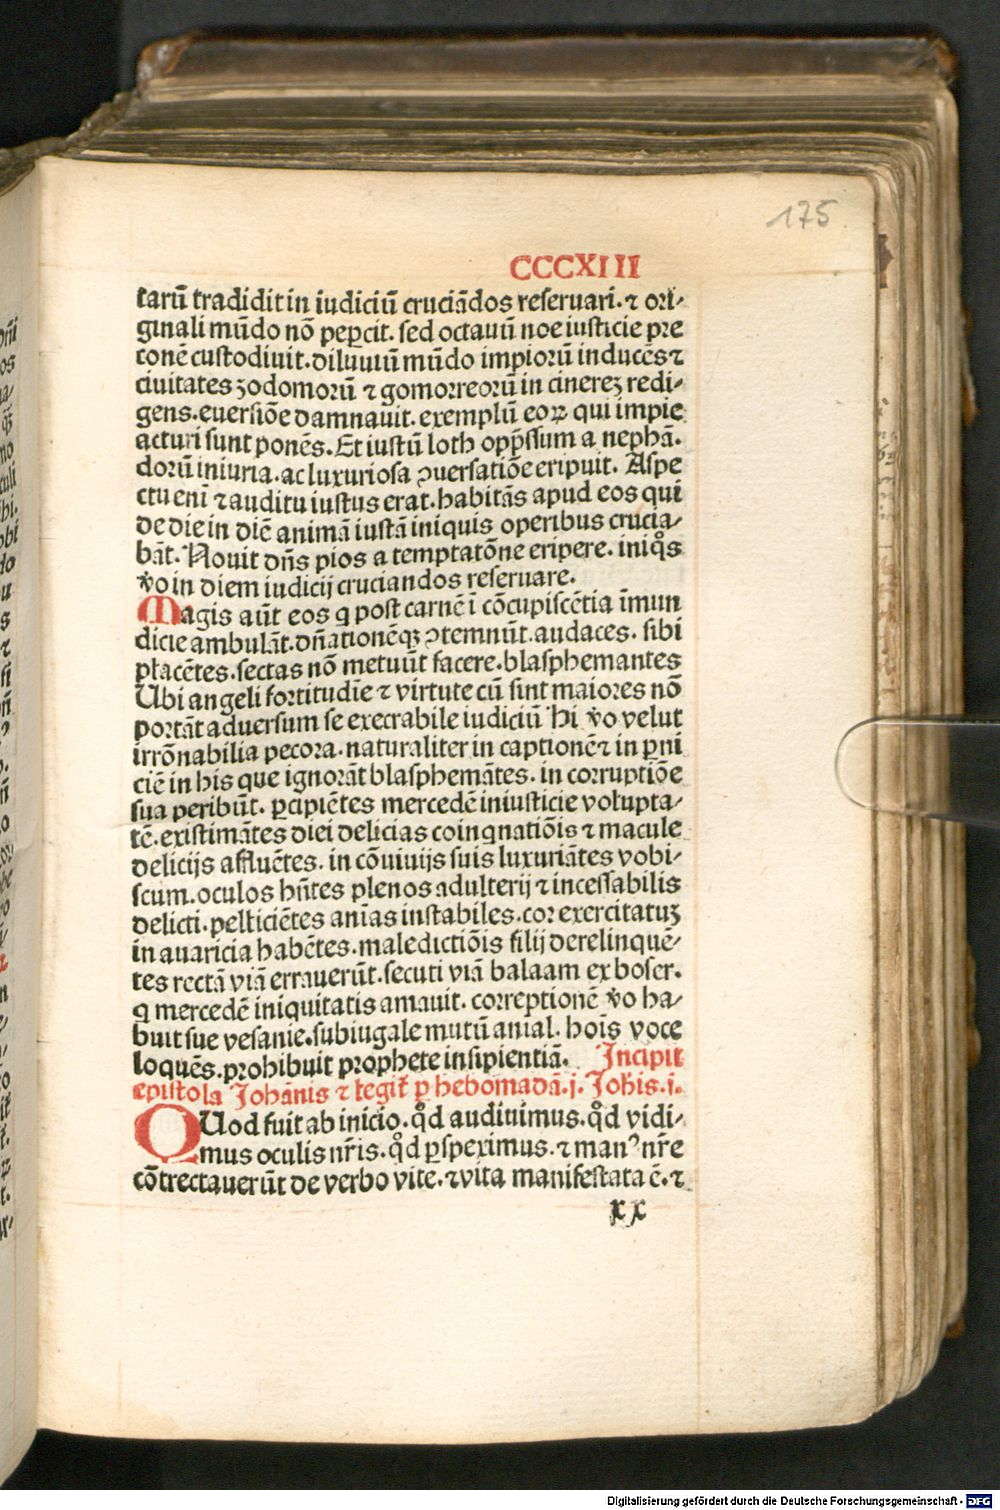 175
CCCXIII
tarū tradidit in iudiciū cruciādos reseruari. ⁊ ori-
ginali mūdo nō peꝑcit. sed octauū noe iusticie pre
conē custodiuit. diluuiū mūdo impiorū inducēs ⁊
ciuitates zodomorū ⁊ gomorreorū in cinereꝫ redi-
gens. euersiōe damnauit. exemplū eoꝝ qui impie
acturi sunt ponēs. Et iustū loth opp̄ssum a nephā-
dorū iniuria. ac luxuriosa ꝯuersatiōe eripuit. Aspe
ctu enī ⁊ auditu iustus erat. habitās apud eos qui
de die in diē animā iustā iniquis operibus crucia-
bāt. Nouit dn̄s pios a temptatōne eripere. iniqͦs
v̊o in diem iudicij cruciandos reseruare.
Magis aūt eos q post carnē ī cōcupiscētia īmun
dicie ambulāt. dn̄ationēqꝫ ꝯtemnūt. audaces. sibi
placētes. sectas nō metuūt facere. blasphemantes
Ubi angeli fortitudīe ⁊ virtute cū sint maiores nō
portāt aduersum se execrabile iudiciū Hi v̊o velut
irrōnabilia pecora. naturaliter in captionē ⁊ in ꝑni
ciē in his que ignorāt blasphemātes. in corruptiōe
sua peribūt. ꝑcipiētes mercedē iniusticie volupta-
tē. existimātes diei delicias coinqnatiōis ⁊ macule
delicijs affluētes. in cōuiuijs suis luxuriātes vobi-
scum. oculos hn̄tes plenos adulterij ⁊ incessabilis
delicti. pelliciētes aniās instabiles. cor exercitatuꝫ
in auaricia habētes. maledictiōis filij derelinquē-
tes rectā viā errauerūt. secuti viā balaam ex bosor.
q mercedē iniquitatis amauit. correptionē v̊o ha-
buit sue vesanie. subiugale mutū aniāl. hoīs voce
loquēs. prohibuit prophete insipientiā. Incipit
epistola Johānis ⁊ legit̄ ꝑ hebomadā. j. Johis. i.
QUod fuit ab inicio. qͦd audiuimus. qͦd vidi-
mus oculis nr̄is. qͦd ꝑspeximus. ⁊ manꝰ nr̄e
cōtrectauerūt de verbo vite. ⁊ vita manifestata ē. ⁊
xx
Digitalisierung gefördert durch die Deutsche Forschungsgemeinschaft - DFG